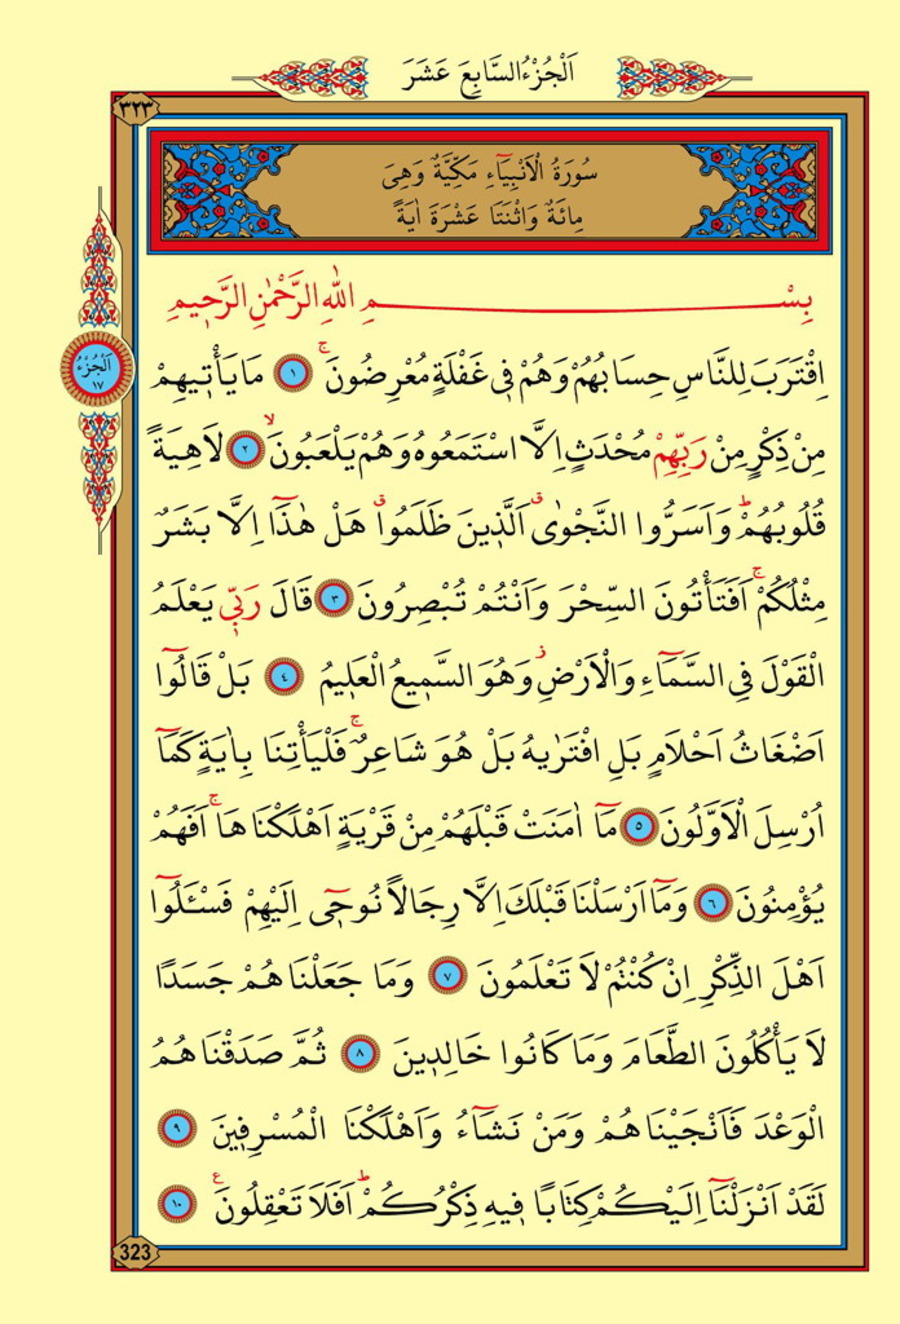 اَلْجُزْءُ السَّابِعَ عَشَرَ
٣٢٣
سُورَةُ الْاَنْبِيَٓاءِ مَكِّيَّةٌ وَهِىَ
مِائَةٌ وَاثْنَتَا عَشْرَةَ اٰيَةً
بِسْمِ اللّٰهِ الرَّحْمٰنِ الرَّحٖيمِ
اِقْتَرَبَ لِلنَّاسِ حِسَابُهُمْ وَهُمْ فٖى غَفْلَةٍ مُعْرِضُونَۚ ١ مَا يَأْتٖيهِمْ
اَلْجُزْءُ
١٧
مِنْ ذِكْرٍ مِنْ رَبِّهِمْ مُحْدَثٍ اِلَّا اسْتَمَعُوهُ وَهُمْ يَلْعَبُونَۙ ٢ لَاهِيَةً
قُلُوبُهُمْؕ وَاَسَرُّوا النَّجْوٰىࣗ اَلَّذٖينَ ظَلَمُواࣗ هَلْ هٰذَٓا اِلَّا بَشَرٌ
مِثْلُكُمْۚ اَفَتَأْتُونَ السِّحْرَ وَاَنْتُمْ تُبْصِرُونَ ٣ قَالَ رَبّٖى يَعْلَمُ
الْقَوْلَ فِى السَّمَٓاءِ وَالْاَرْضِؗ وَهُوَ السَّمٖيعُ الْعَلٖيمُ ٤ بَلْ قَالُٓوا
اَضْغَاثُ اَحْلَامٍ بَلِ افْتَرٰيهُ بَلْ هُوَ شَاعِرٌۚ فَلْيَأْتِنَا بِاٰيَةٍ كَمَٓا
اُرْسِلَ الْاَوَّلُونَ ٥ مَٓا اٰمَنَتْ قَبْلَهُمْ مِنْ قَرْيَةٍ اَهْلَكْنَاهَاۚ اَفَهُمْ
يُؤْمِنُونَ ٦ وَمَٓا اَرْسَلْنَا قَبْلَكَ اِلَّا رِجَالًا نُوحٖٓى اِلَيْهِمْ فَسْـَٔلُٓوا
اَهْلَ الذِّكْرِ اِنْ كُنْتُمْ لَا تَعْلَمُونَ ٧ وَمَا جَعَلْنَاهُمْ جَسَدًا
لَا يَأْكُلُونَ الطَّعَامَ وَمَا كَانُوا خَالِدٖينَ ٨ ثُمَّ صَدَقْنَاهُمُ
الْوَعْدَ فَاَنْجَيْنَاهُمْ وَمَنْ نَشَٓاءُ وَاَهْلَكْنَا الْمُسْرِفٖينَ ٩
لَقَدْ اَنْزَلْنَٓا اِلَيْكُمْ كِتَابًا فٖيهِ ذِكْرُكُمْؕ اَفَلَا تَعْقِلُونَࣖ ١٠
323